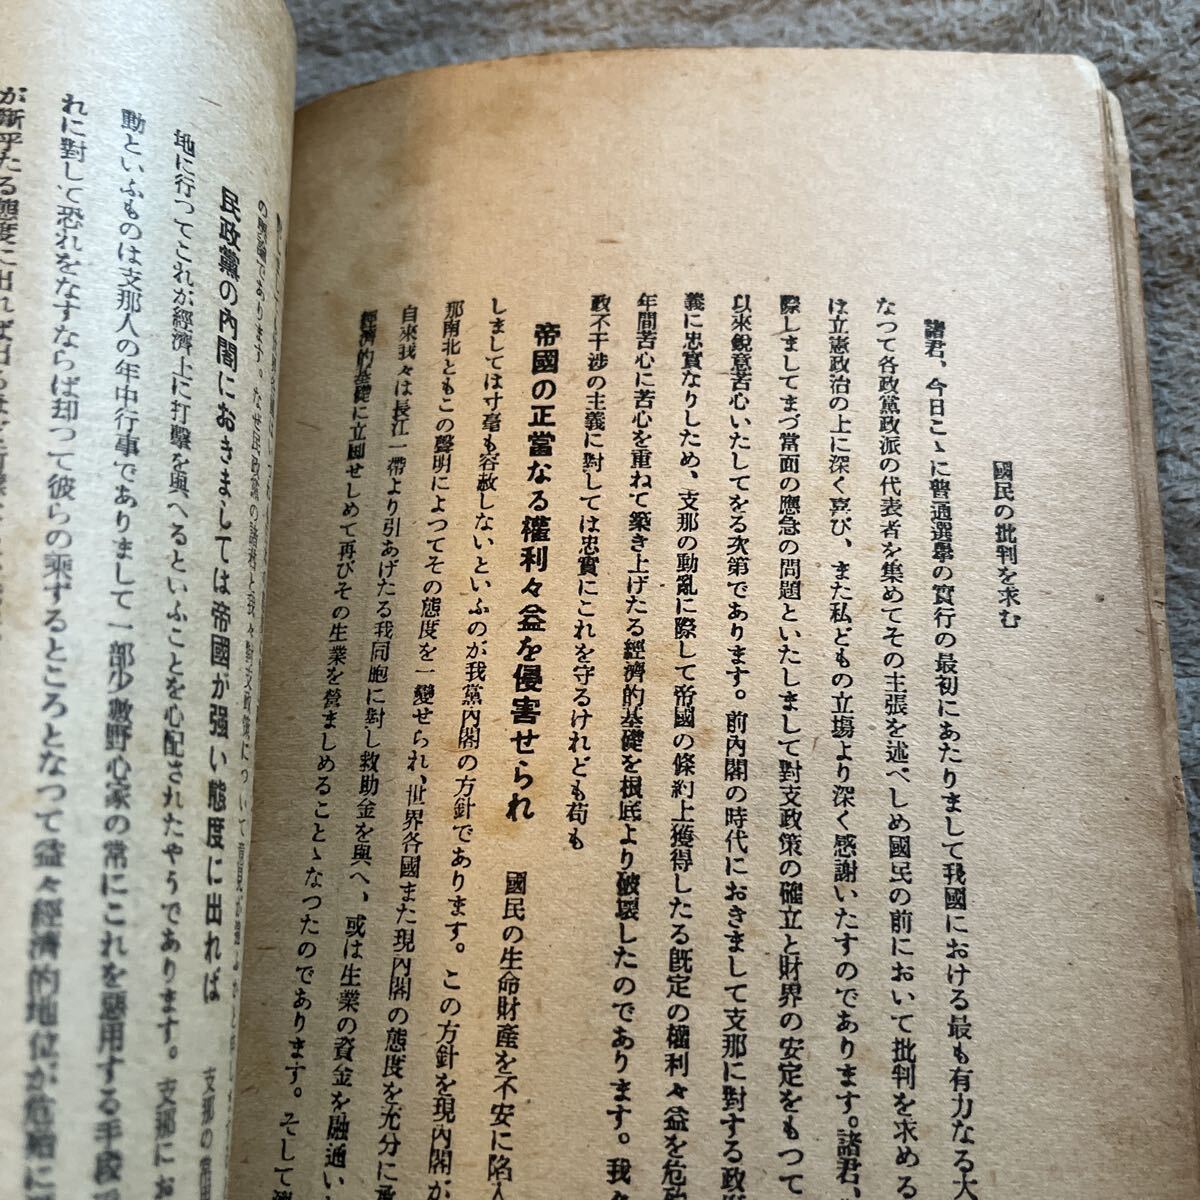 國民の批判を求む
諸君、今日こゝに普通選擧の實行の最初にあたりまして我國における最も有力なる大
なつて各政黨政派の代表者を集めてその主張を述べしめ國民の前において批判を求める
は立憲政治の上に深く喜び、また私どもの立塲より深く感謝いたすのであります。諸君、
際しましてまづ當面の應急の問題といたしまして對支政策の確立と財界の安定をもつて
以來鋭意苦心いたしてをる次第であります。前內閣の時代におきまして支那に對する政
義に忠實なりしため、支那の動亂に際して帝國の條約上獲得したる旣定の權利々益を危
年間苦心に苦心を重ねて築き上げたる經濟的基礎を根底より破壞したのであります。我
政不干涉の主義に對しては忠實にこれを守るけれども苟も
帝國の正當なる權利々益を侵害せられ 國民の生命財產を不安に陷
しましては寸毫も容赦しないといふのが我黨內閣の方針であります。この方針を現內閣が
那南北ともこの聲明によつてその態度を一變せられ、世界各國また現內閣の態度を充分に
自來我々は長江一帶より引あげたる我同胞に對し救助金を與へ、或は生業の資金を融通い
經濟的基礎に立固せしめて再びその生業を營ましめることゝなつたのであります。そして
の理論であります。なぜ民政黨の諸君と我々對支政策について意見が
民政黨の內閣におきましては帝國が强い態度に出れば 支那の
地に行つてこれが經濟上に打擊を與へるといふことを心配されたやうであります。支那にお
動といふものは支那人の年中行事でありまして一部少數野心家の常にこれを惡用する手段
れに對して恐れをなすならば却つて彼らの乘ずるところとなつて益々經濟的地位が危殆に
が斷乎たる態度に出れば